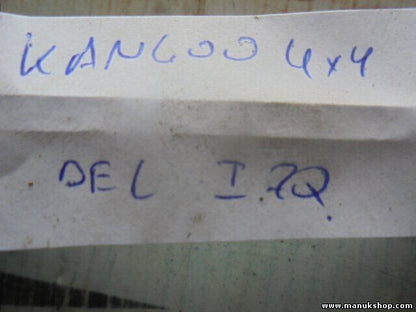 KANGOO 4x4
DEL IZQ.
www.manukshop.com